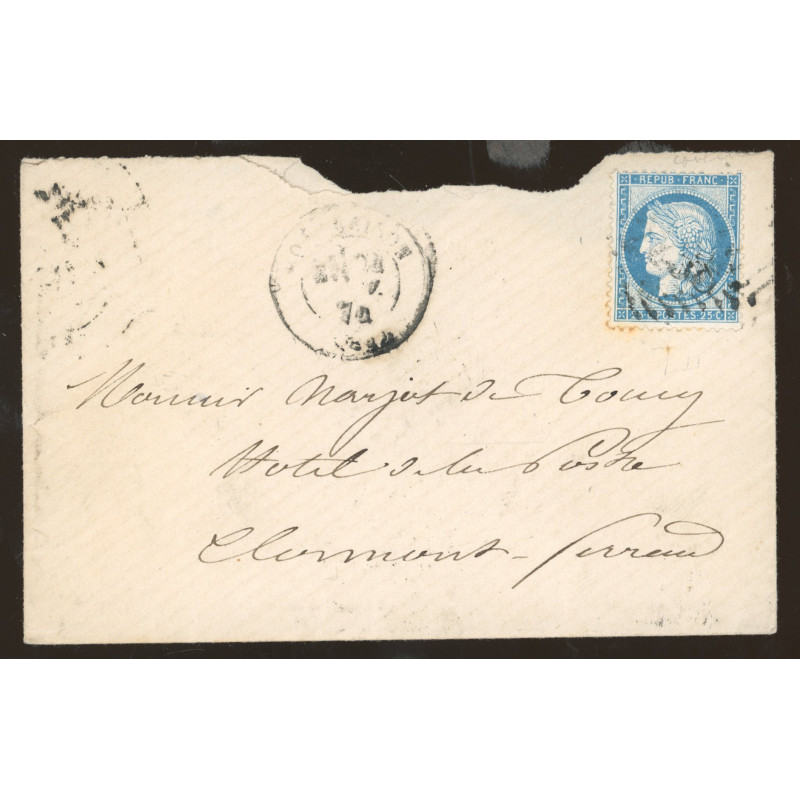 REPUB·FRANC
POSTES 25 C
74
Monsieur Marjot de Toucy
Hotel de la Poste
Clermont-Ferrand